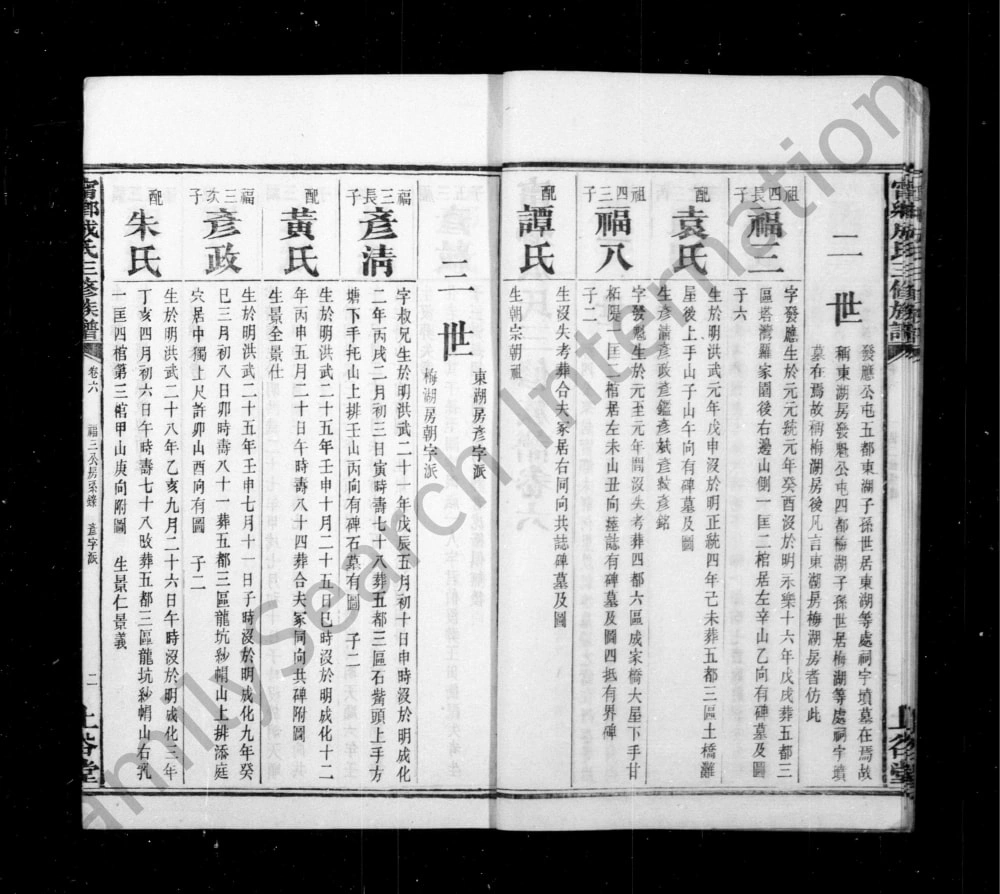 二世
發應公屯五都東湖子孫世居東湖等處祠宇墳墓在焉故
稱東湖房發魁公屯四都梅湖子孫世居梅湖等處祠宇墳
墓在焉故稱梅湖房後凡言東湖房梅湖房者仿此
祖四長子
福三
字發應生於元元統元年癸酉沒於明永樂十六年戊戌葬五都三
區塔灣羅家園後右邊山側一匡二棺居左辛山乙向有碑墓及圖
子六
配
袁氏
生於明洪武元年戊申沒於明正統四年己未葬五都三區土橋灘
屋後上手山子山午向有碑墓及圖
生彥清彥政彥鑑彥斌彥敖彥銘
祖四三子
福八
字發魁生於元至元年間沒失考葬四都六區成家橋大屋下手甘
柘隄一匡二棺居左未山丑向誌有碑墓及圖四抵有界碑
子二
配
譚氏
生沒失考葬合夫冢居右同向共誌碑墓及圖
生朝宗朝祖
三世
東湖房彥字派
梅湖房朝字派
福三長子
彥清
字叔兄生於明洪武二十一年戊辰五月初十日申時沒於明成化
二年丙戌二月初三日寅時壽七十八葬五都三區石觜頭上手方
塘下手托山上排壬山丙向有碑石墓有圖 子二
配
黃氏
生於明洪武二十五年壬申十月二十五日巳時沒於明成化十二
年丙申五月二十日午時壽八十四葬合夫冢同向共碑附圖
生景全景仕
福三次子
彥政
生於明洪武二十五年壬申七月十一日子時沒於明成化九年癸
巳三月初八日卯時壽八十一葬五都三區龍坑紗帽山上排添庭
穴居中獨上尺許卯山酉向有圖 子二
配
朱氏
生於明洪武二十八年乙亥九月二十六日午時沒於明成化三年
丁亥四月初六日午時壽七十八歿葬五都三區龍坑紗帽山右乳
一匡四棺第三棺甲山庚向附圖 生景仁景義
甯鄉成氏三修族譜
卷六
福三公房系錄 彥字派
二
上谷堂
FamilySearch International